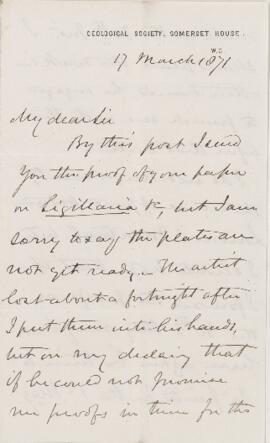 GEOLOGICAL SOCIETY, SOMERSET HOUSE.
W.C.
17 March 1871
My dear Sir
By this post I send
you the proof of your paper
on Sigillaria &c, but I am
sorry to say the plates are
not yet ready. The artist
lost about a fortnight after
I put them into his hands,
but on my declaring that
if he could not promise
me proofs in them for the